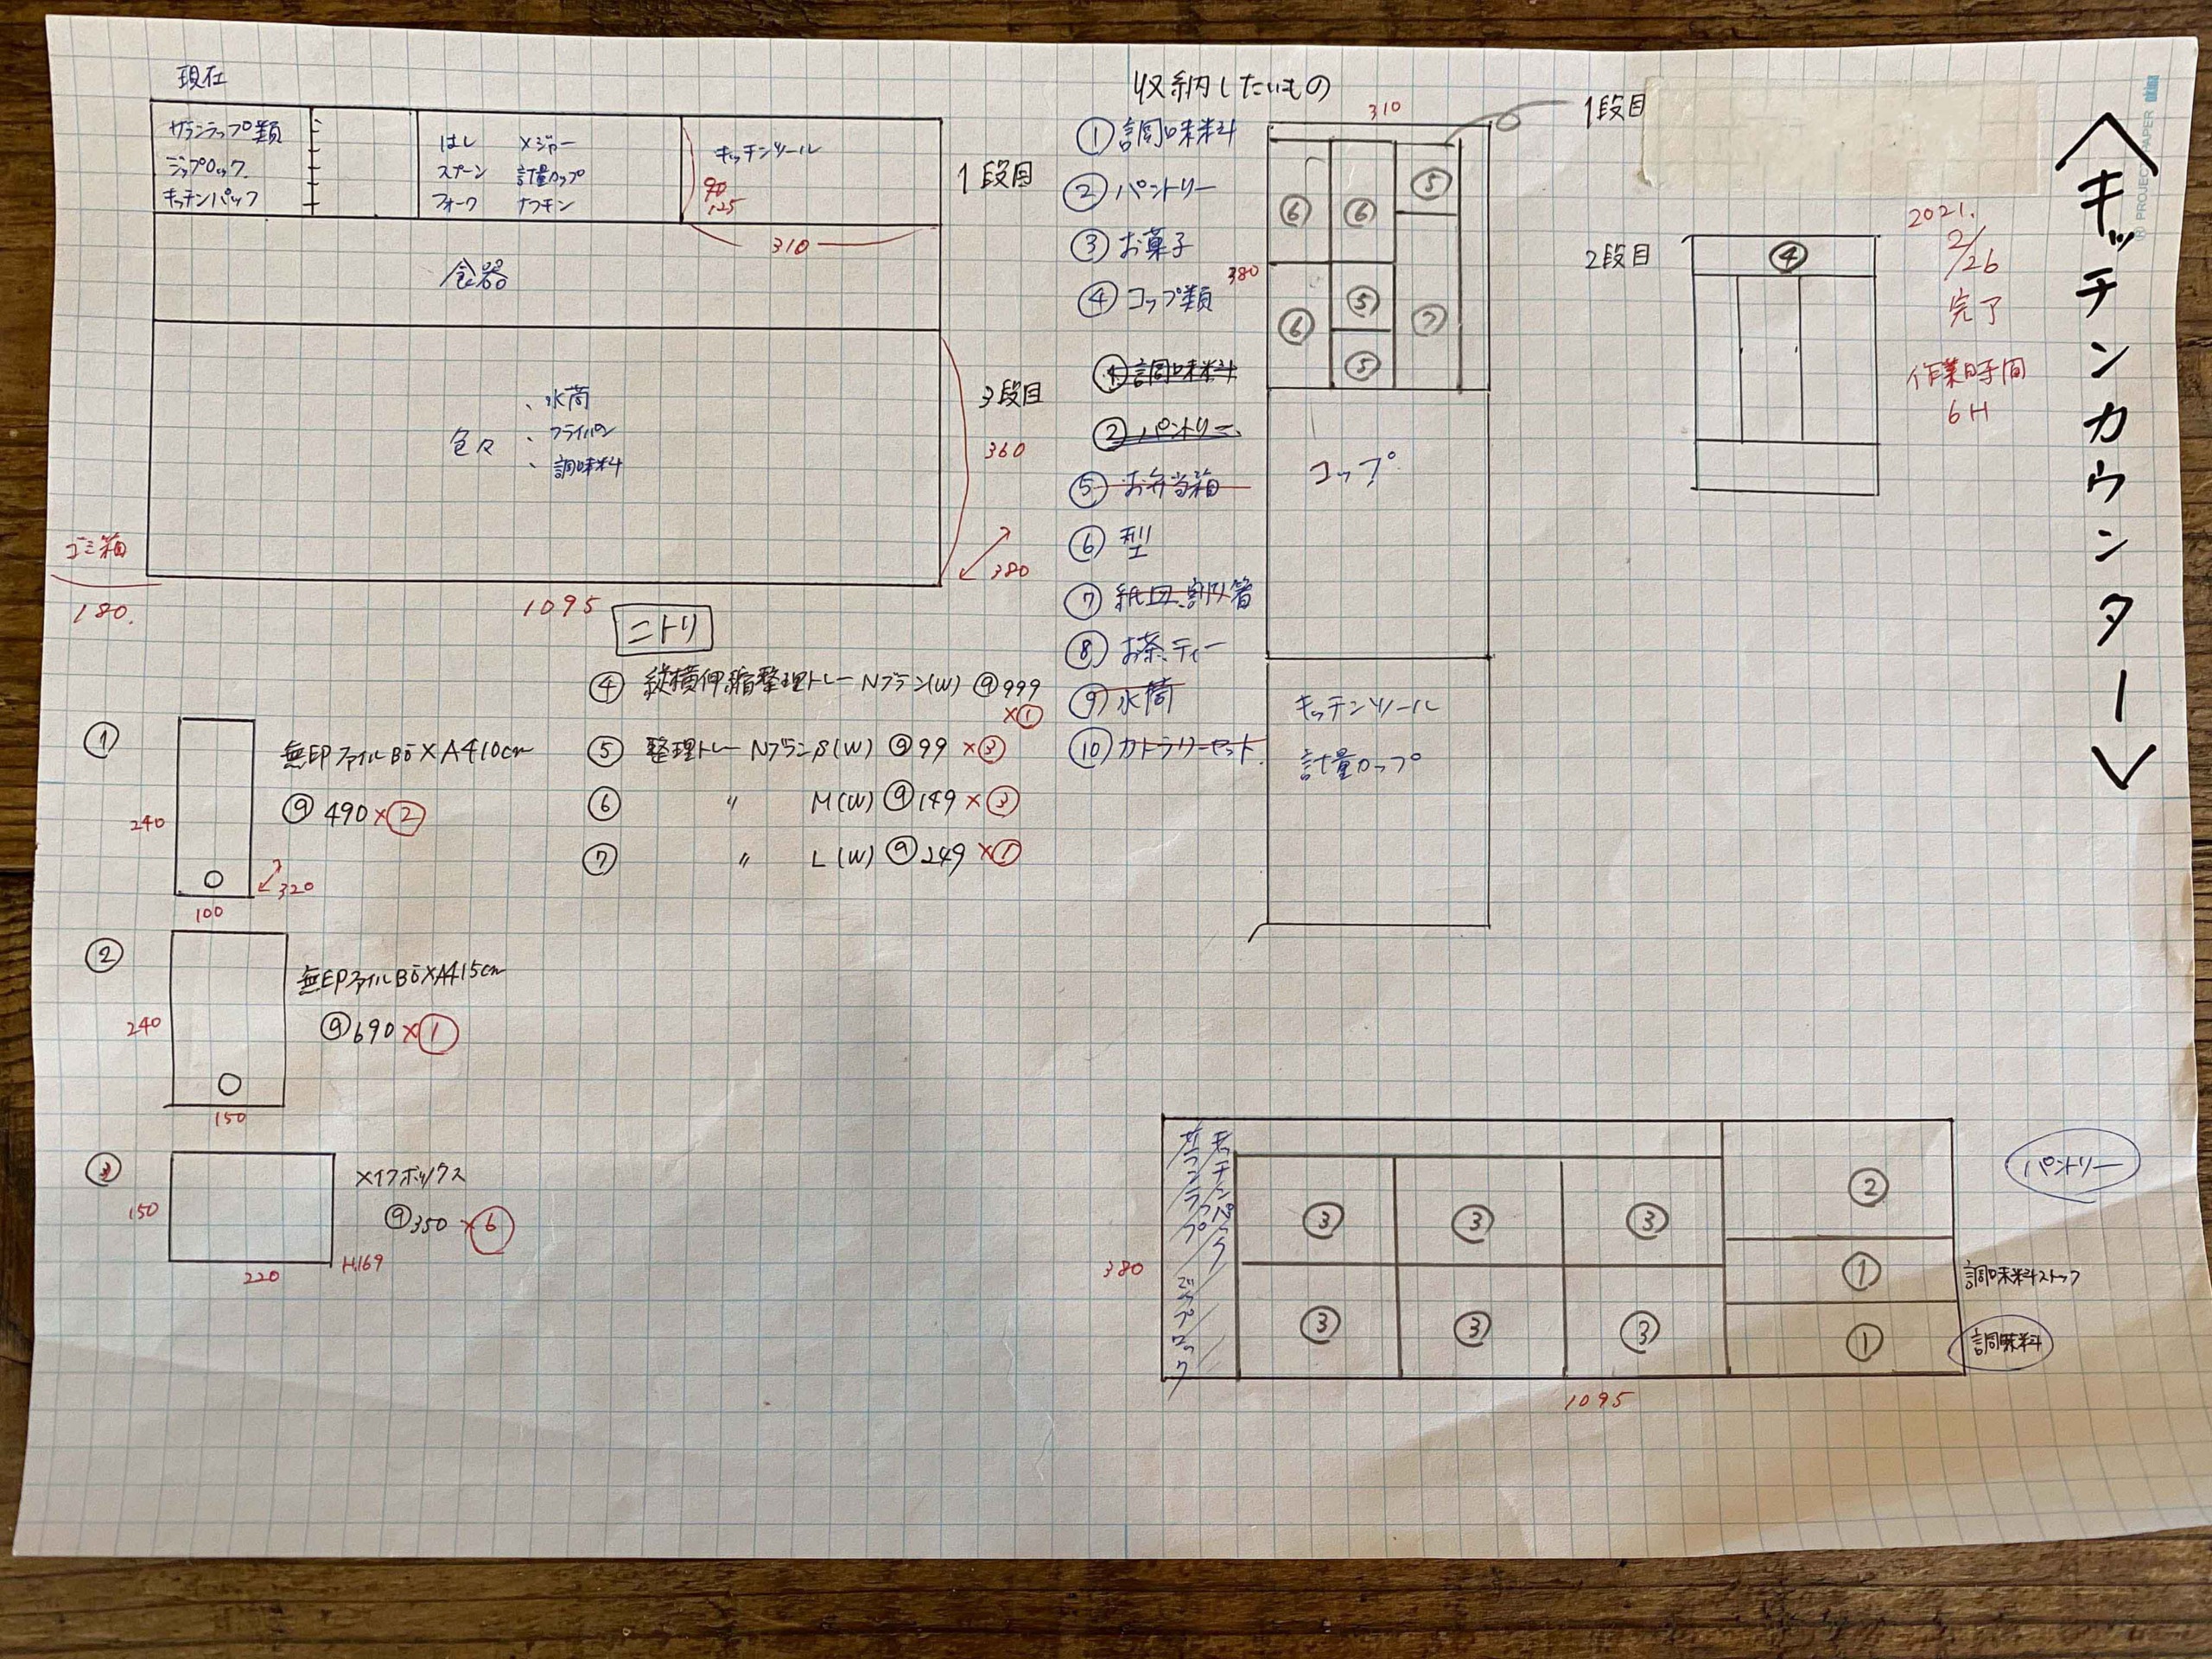 現在
サランラップ類
ジップロック
キッチンパック
はし メジャー
スプーン 計量カップ
フォーク ナフキン
キッチンツール
90
125
310
1段目
食器
色々
、水筒
、フライパン
、調味料
3段目
360
380
ゴミ箱
180.
1095
ニトリ
④ 縦横伸縮整理トレー Nブラン(W) @999
×①
⑤ 整理トレー NブランS(W) @99 ×③
⑥ 〃 M(W) @149 ×③
⑦ 〃 L(W) @249 ×①
①
無印ファイルBOX A4 10cm
@490×②
240
320
100
②
無印ファイルBOX A4 15cm
@690×①
240
150
③
メイクボックス
@350×⑥
150
220
H.169
収納したいもの
① 調味料
② パントリー
③ お菓子
④ コップ類
① 調味料
② パントリー
⑤ お弁当箱
⑥ 型
⑦ 紙皿、割り箸
⑧ お茶、ティー
⑨ 水筒
⑩ カトラリーセット
310
1段目
380
⑥ ⑥ ⑤
⑥ ⑤ ⑦
⑤
コップ
キッチンツール
計量カップ
2段目
④
2021.
2/26
完了
作業時間
6H
<キッチンカウンター>
PROJECT PAPER
サランラップ
キッチンパック
ジップロック
③ ③ ③ ②
①
③ ③ ③ ①
380
1095
パントリー
調味料ストック
調味料